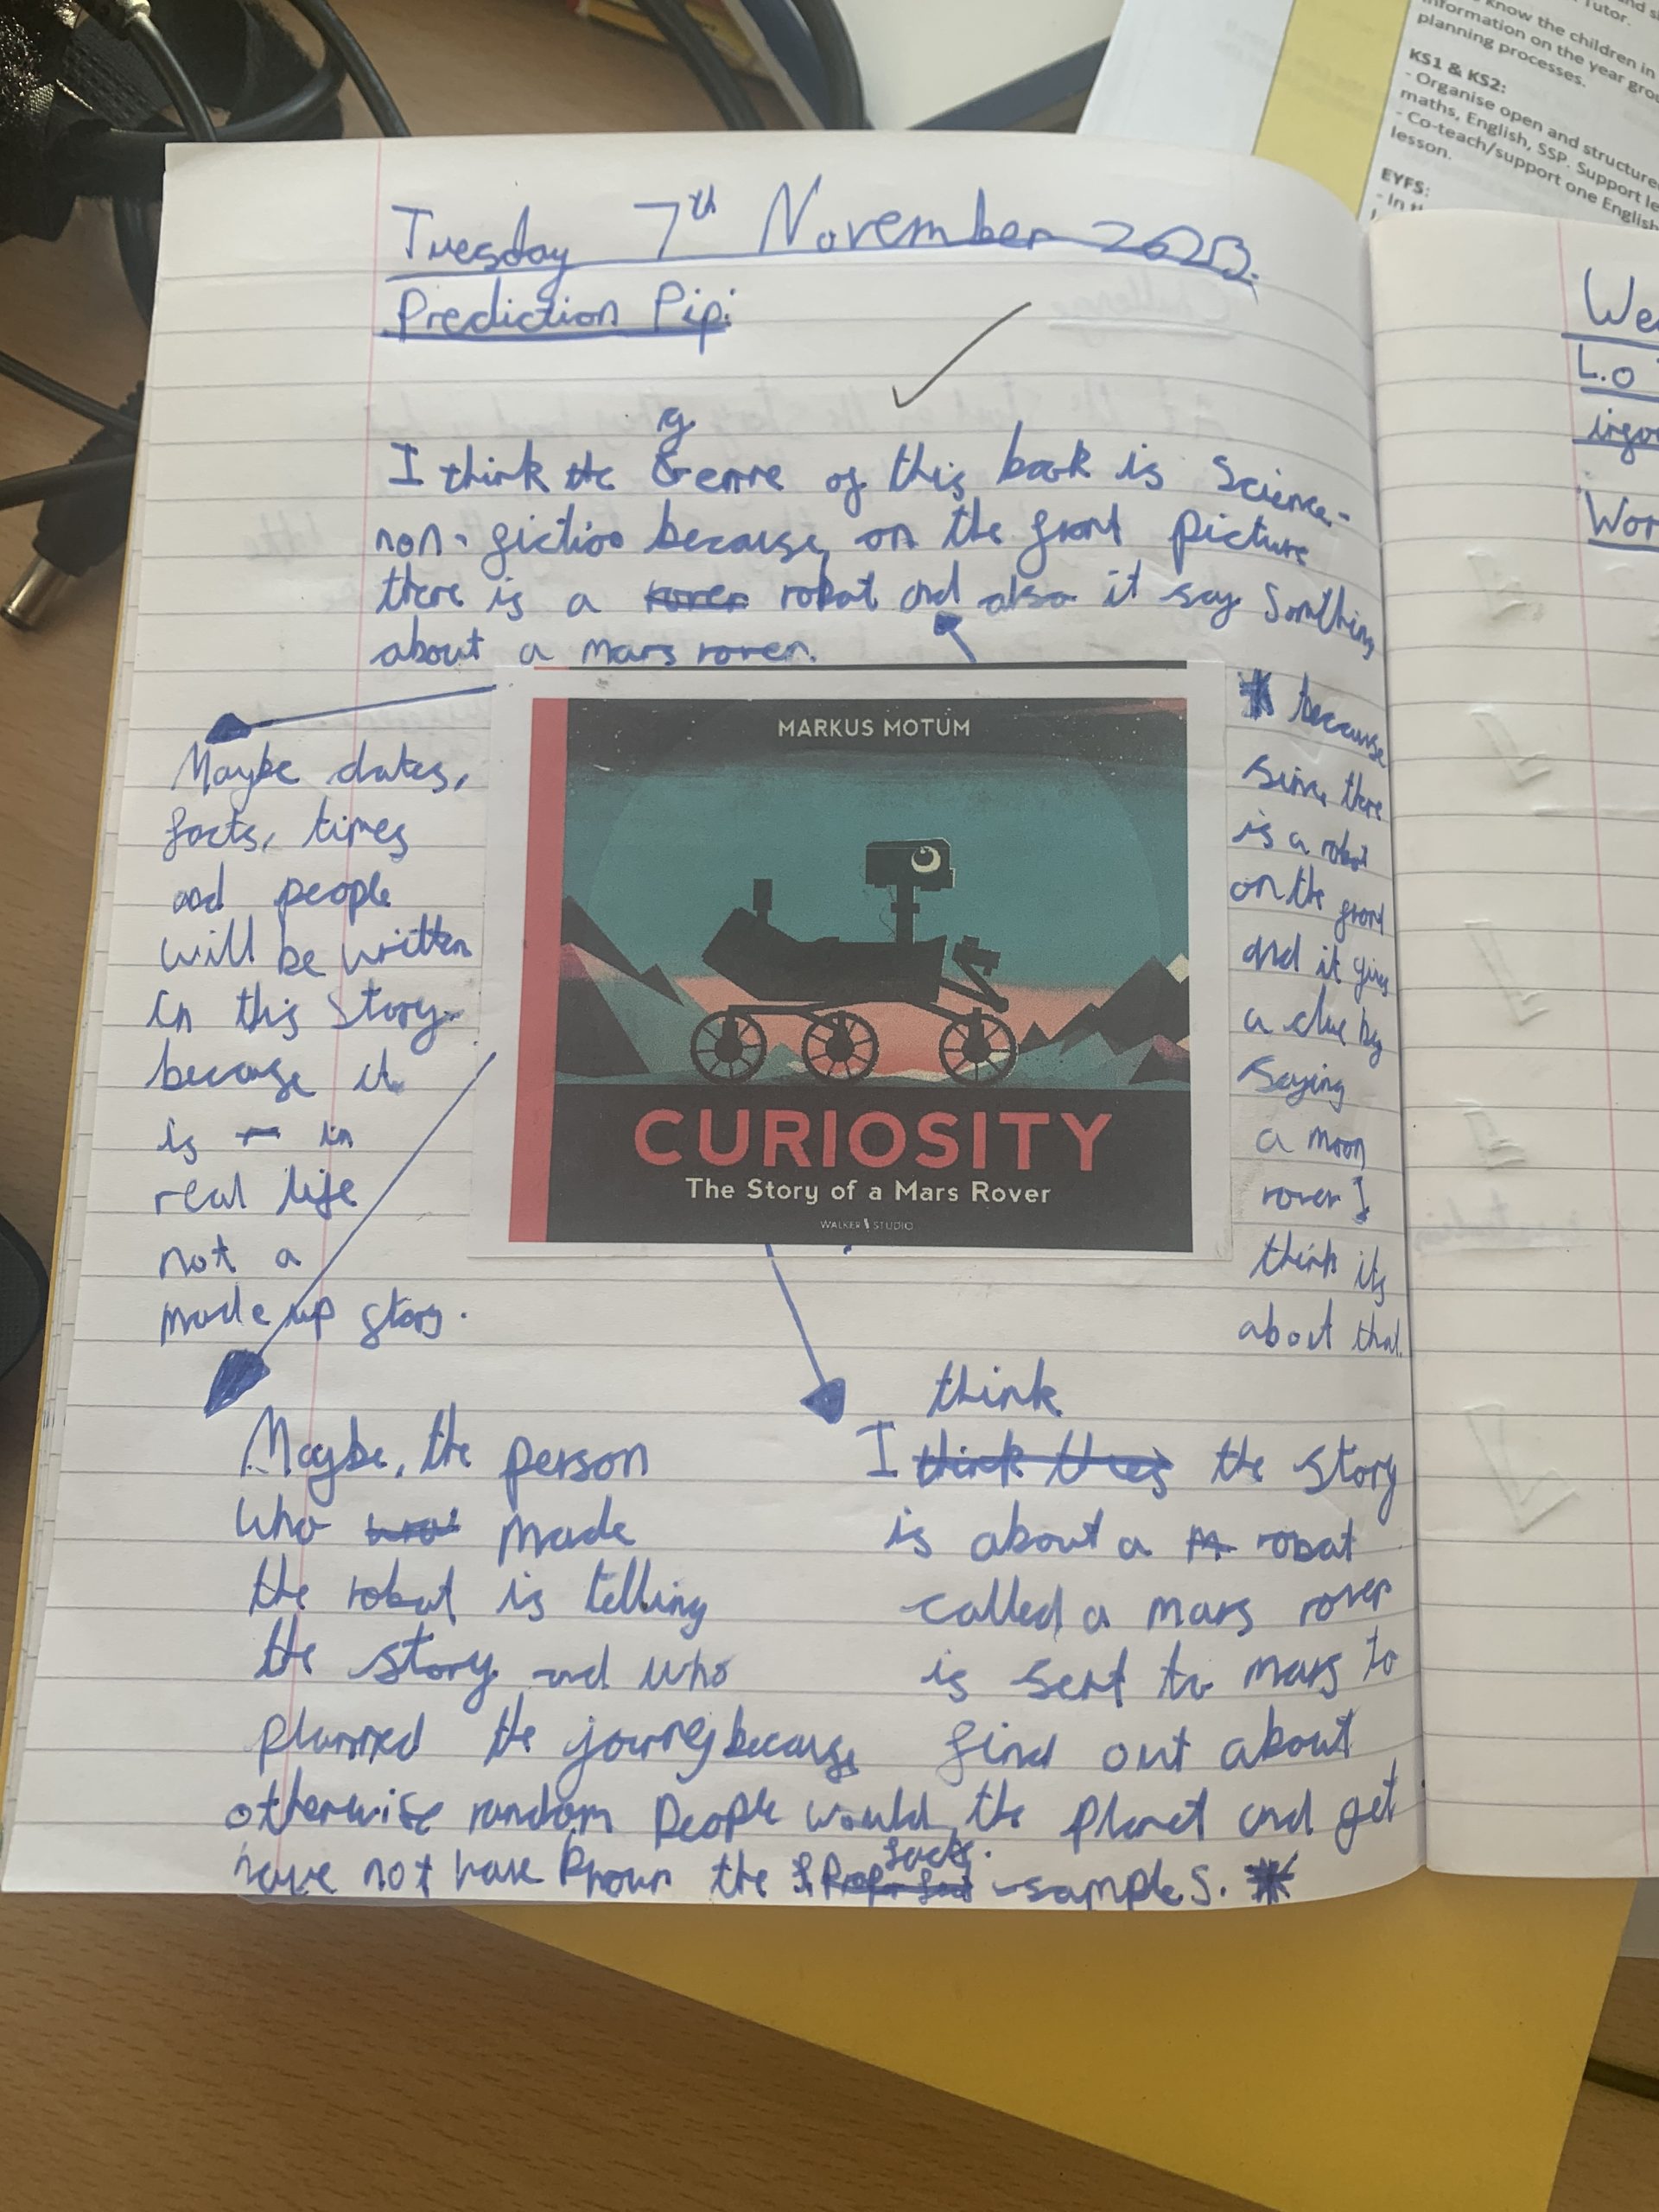 know the children in
information on the year grou
planning processes.
KS1 & KS2:
- Organise open and structure
maths, English, SSP. Support le
- Co-teach/support one English
lesson.
EYFS:
Tuesday 7th November 2023.
Prediction Pip:
g
I think the Genre of this book is Science-
non-fiction because, on the front picture
there is a rover robot and also it say Somthing
about a mars rover.
Maybe dates,
facts, times
and people
will be written
in this story
because it
is in
real life
not a
made up story.
MARKUS MOTUM
CURIOSITY
The Story of a Mars Rover
WALKER STUDIO
* because
since there
is a robot
on the front
and it gives
a clue by
saying
a moon
rover I
think its
about that.
Maybe, the person
who made
the robot is telling
the story and who
planned the journey because
otherwise random People would
have not have known the facts.
think
I think the story
is about a robot
called a mars rover
is sent to mars to
find out about
the planet and get
samples. *
We
L.O
Wor